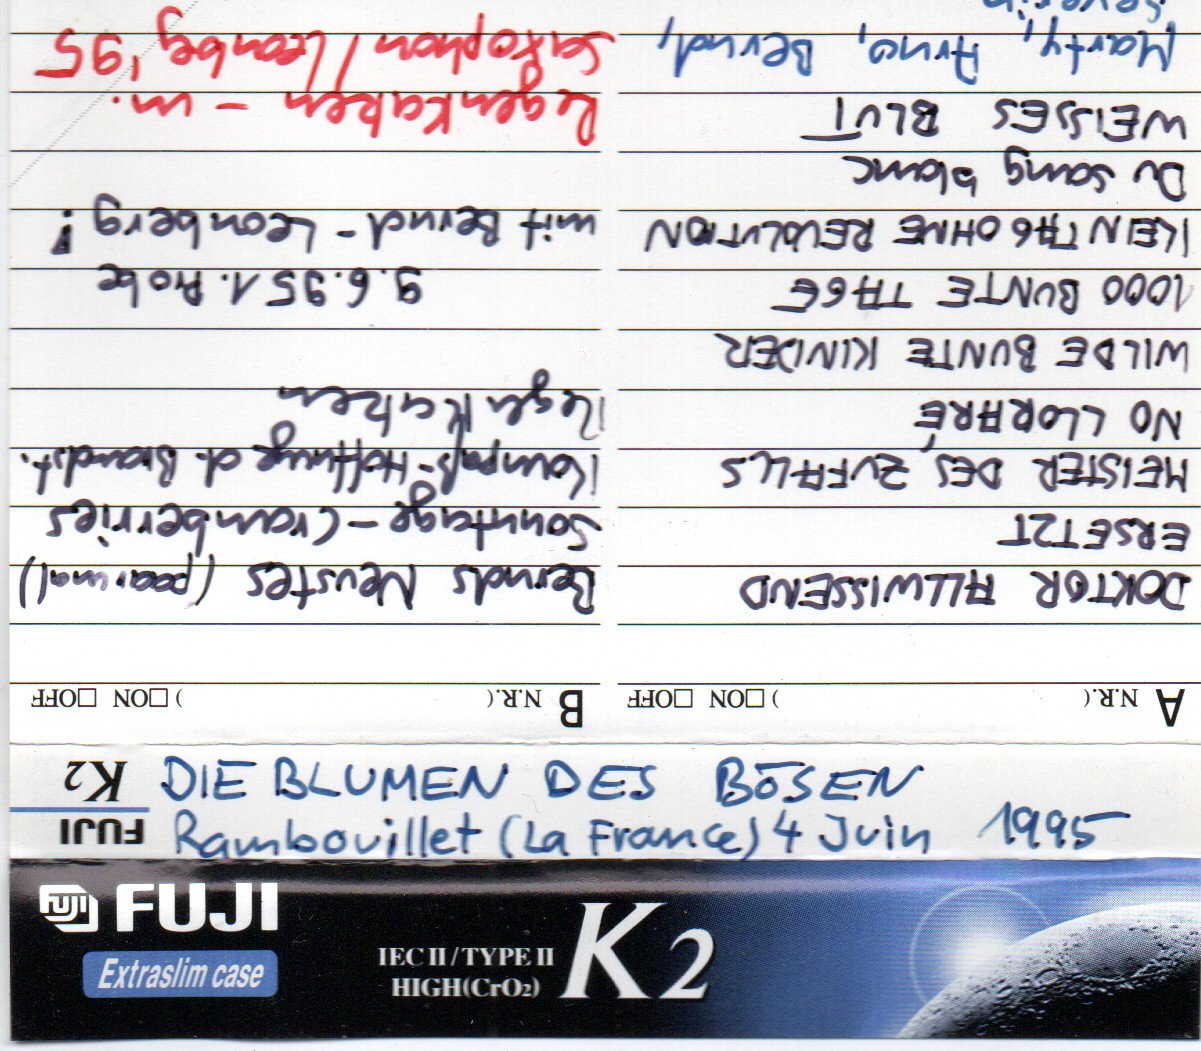 A N.R.( ) □ON □OFF
DOKTOR ALLWISSEND
ERSETZT
MEISTER DES ZUFALLS
NO LLORARÉ
WILDE BUNTE KINDER
1000 BUNTE TAGE
KEIN TAG OHNE REVOLUTION
Du sang blanc
WEISSES BLUT
Marty, Arno, Bernd,
Severin
B N.R.( ) □ON □OFF
Bernds Neustes (paarmal)
Sonntage - Cranberries
Kompaß - Hoffnung d. Brandst.
Regenkatzen
9.6.95 1. Probe
mit Bernd - Leonberg!
Regenkatzen - m.
Saxophon / Leonbg '95
K2
FUJI
DIE BLUMEN DES BÖSEN
Rambouillet (La France) 4 Juin 1995
FUJI FUJI
Extraslim case
IEC II / TYPE II
HIGH (CrO2)
K2